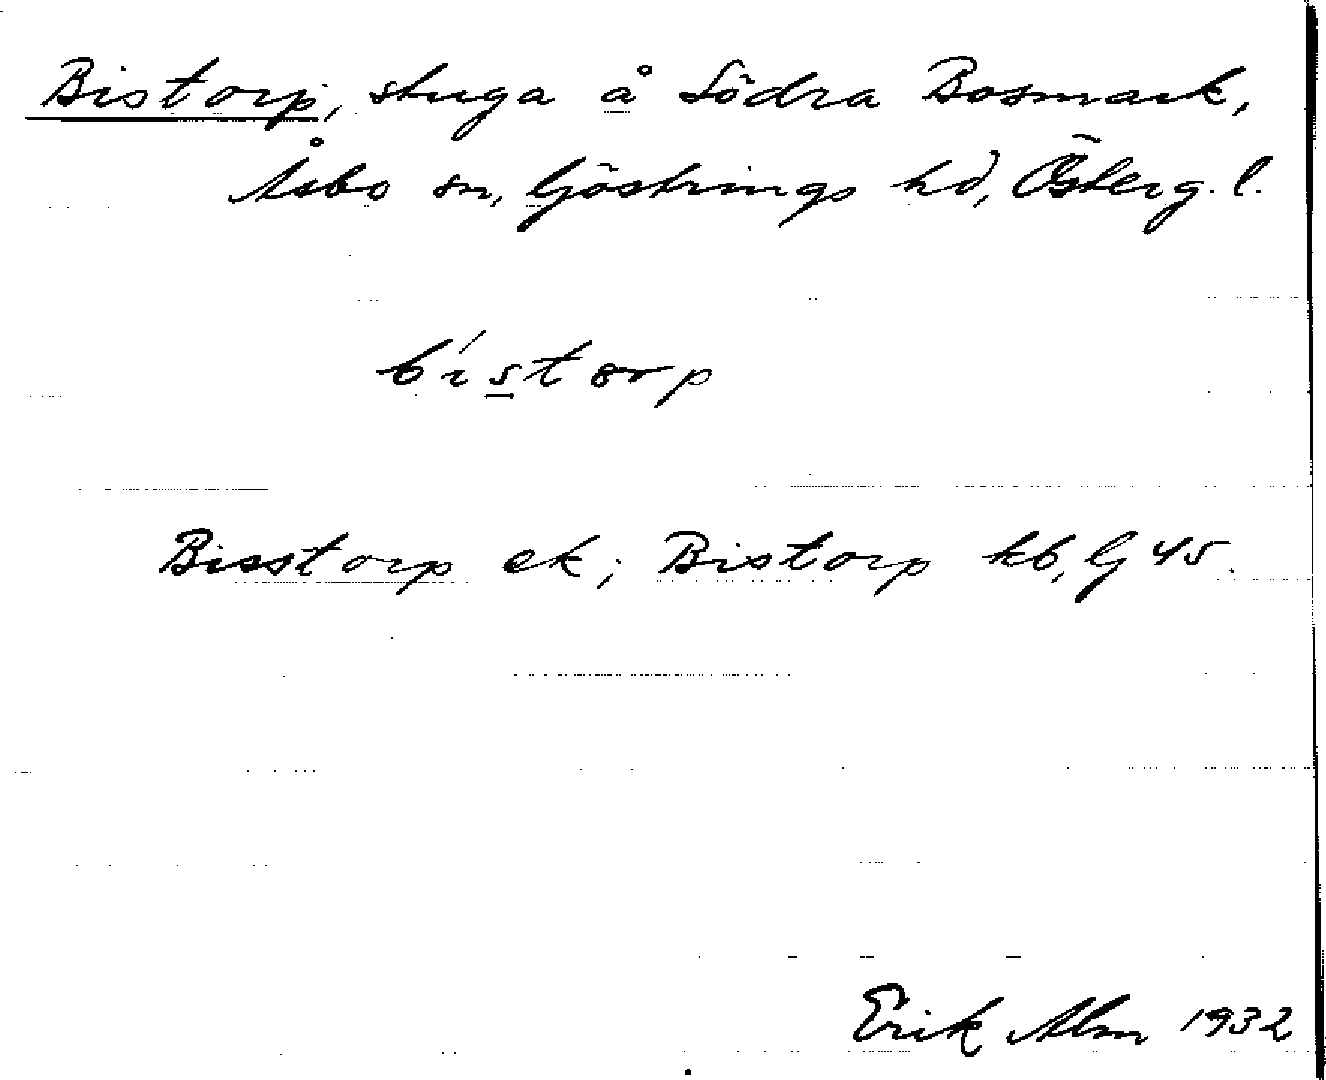 Bistorp, stuga å Södra Bosmark,
Åsbo sn, Göstrings hd, Österg. l.
bístorp
Bisstorp ek; Bistorp kb, G 45.
Erik Alm 1932